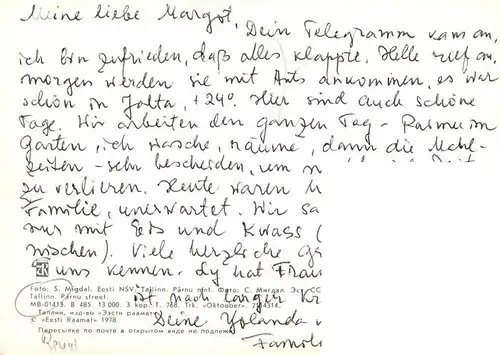 Meine liebe Margot,
Dein Telegramm kam an,
ich bin zufrieden, daß alles klappte. Helle rief an,
morgen werden sie mit Ants ankommen, es war
schön in Jalta, +24°. Hier sind auch schöne
Tage. Wir arbeiten den ganzen Tag - Rasmus im
Garten, ich wasche, räume, dann die Mahl-
zeiten - sehr bescheiden, um n
zu verlieren. Heute waren
Familie, unerwartet. Wir sa
nur mit Eis und Kwass (
mischen). Viele herzliche
uns kennen. Ly hat Frau
Foto: S. Migdal. Eesti NSV. Tallinn. Pärnu mnt. Фото: С. Мигдал. Эс СС
Tallinn. Pärnu street.
MB-01413. B 485. 13 000. 3 kop. T. 768. Trk. «Oktoober». 314316.
Таллин, изд-во «Ээсти раамат»
© «Eesti Raamat» 1978
Пересылке по почте в открытом виде не подлеж
ist nach langer Kr
Deine Yolanda
Famili